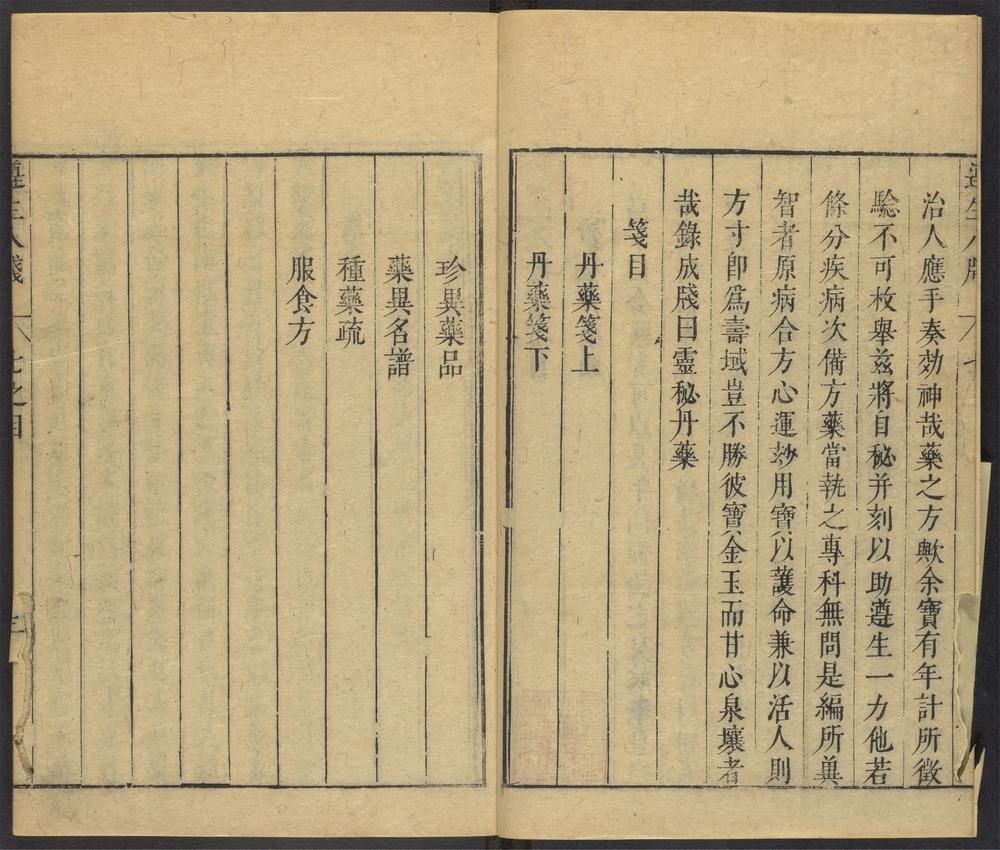 治人應手奏効神哉藥之方歟余寶有年計所徵
驗不可枚舉兹將自秘并刻以助遵生一力他若
條分疾病次備方藥當執之專科無問是編所兾
智者原病合方心運玅用寶以護命兼以活人則
方寸卽爲壽域豈不勝彼寶金玉而甘心泉壤者
哉錄成牋曰靈秘丹藥
箋目
丹藥箋上
丹藥箋下
珍異藥品
藥異名譜
種藥疏
服食方
遵生八牋 七之目 三